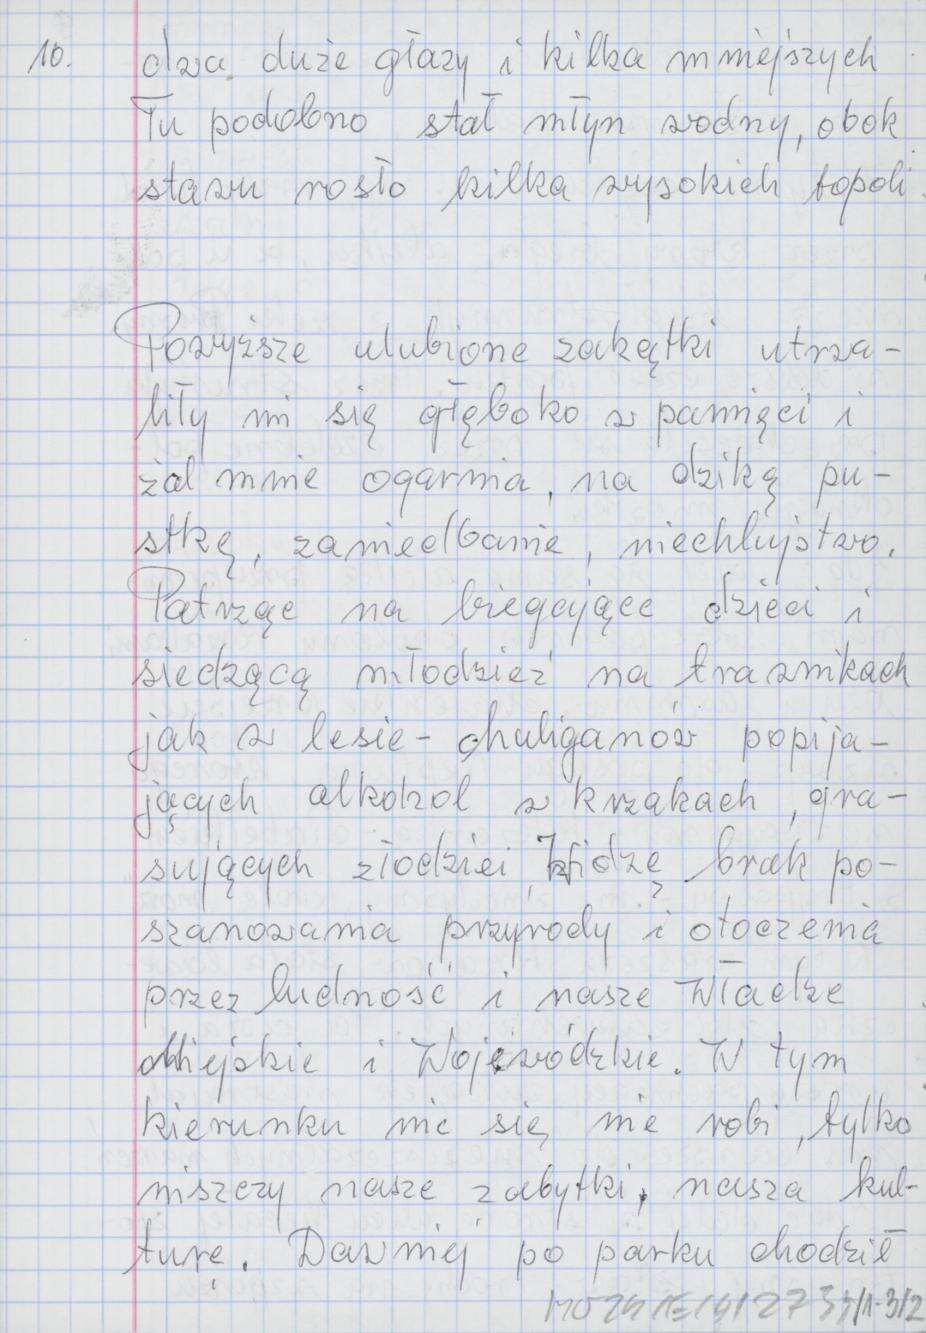 10. dwa duże głazy i kilka mniejszych
Tu podobno stał młyn wodny, obok
stawu rosło kilka wysokich topoli.
Powyższe ulubione zakątki utrwa-
liły mi się głęboko w pamięci i
żal mnie ogarnia, na dziką pu-
stkę, zaniedbanie, niechlujstwo.
Patrząc na biegające dzieci i
siedzącą młodzież na trawnikach
jak w lesie - chuliganów popija-
jących alkohol w krzakach, gra-
sujących złodziei, Widzę brak po-
szanowania przyrody i otoczenia
przez ludność i nasze Władze
Miejskie i Wojewódzkie. W tym
kierunku nic się nie robi, tylko
niszczy nasze zabytki, nasza kul-
turę. Dawniej po parku chodził